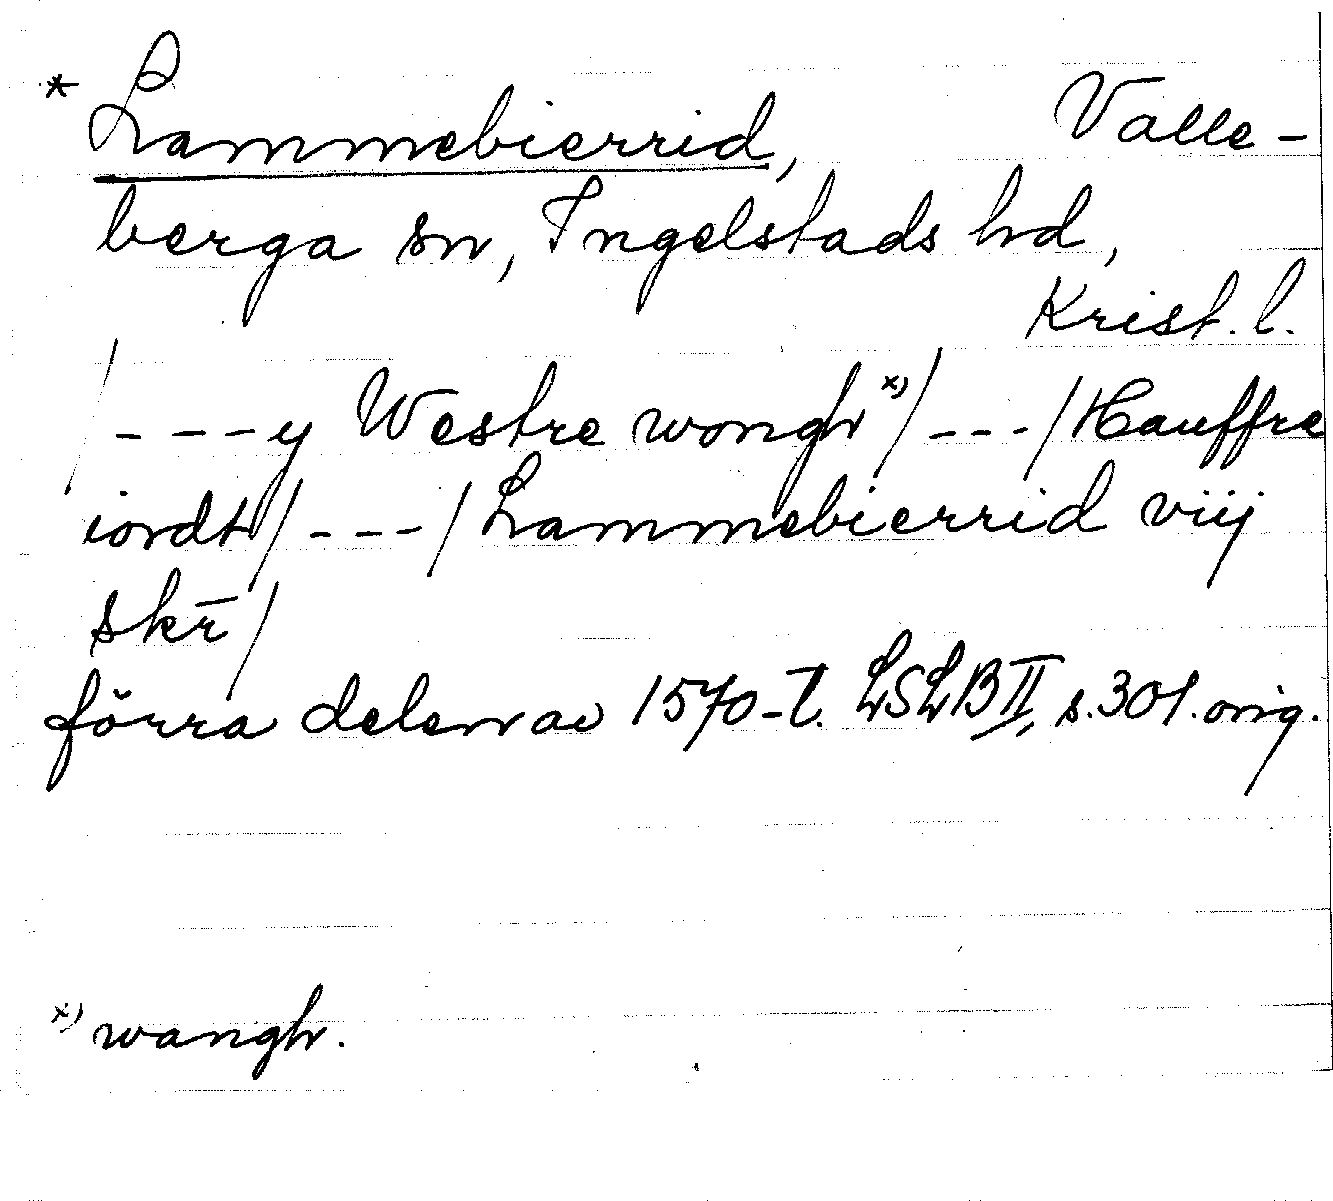 * Lammebierrid, Valle-
berga sn, Ingelstads hd,
Krist. l.
/---y Westre wongh x)/---/Hauffre
iordt/---/Lammebierrid viij
skr̄/
förra delen av 1570-t. LSLB II, s. 301. orig.
x) wangh.